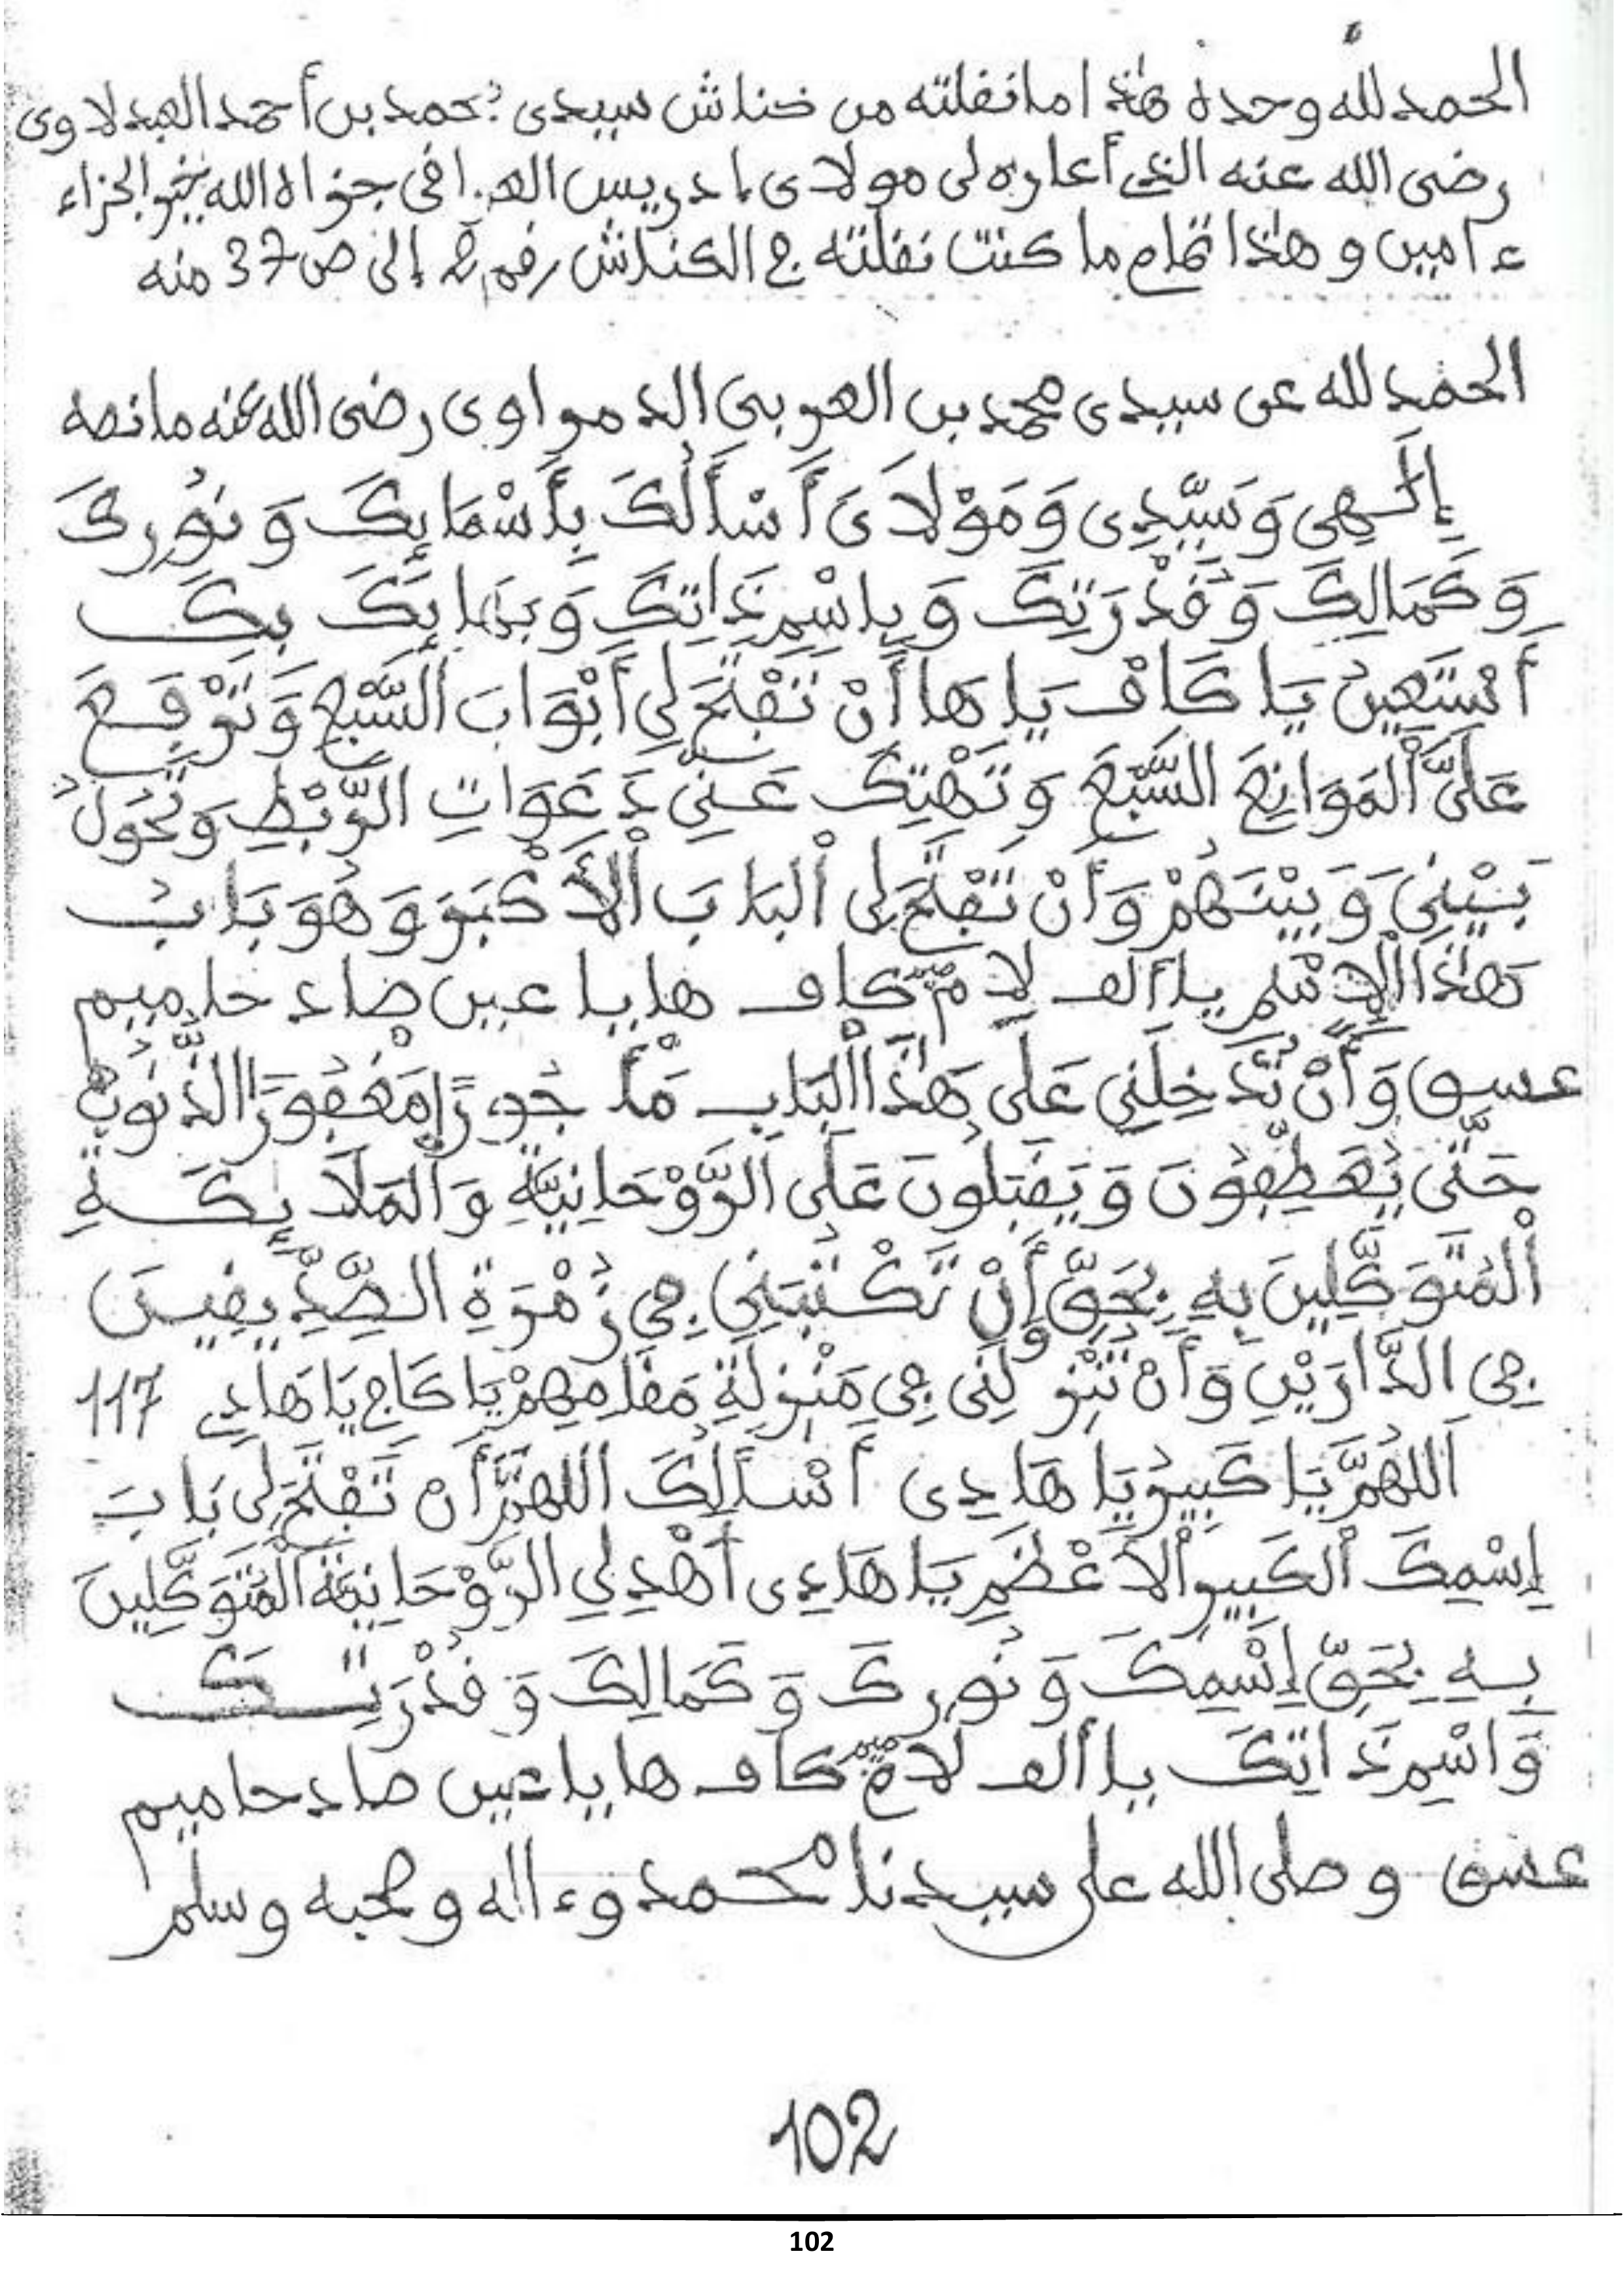 الحمد لله وحده هٰذا ما نقلته من كناش سيدى محمد بن أحمد العبدلاوى
رضى الله عنه الذي أعاره لى مولاى ادريس العراقى جزاه الله بخير الجزاء
ءامين و هٰذا تمام ما كنت نقلته في الكناش رقم 2 إلى ص 37 منه
الحمد لله عن سيدى محمد بن العربى الدمراوى رضى الله عنه ما نصه
إِلَٰهِى وَسَيِّدِى وَمَوْلَاىَ أَسْأَلُكَ بِأَسْمَايِكَ وَنُورِكَ
وَكَمَالِكَ وَقُدْرَتِكَ وَبِاسْمِ ذَاتِكَ وَبَهَايِكَ بِكَ
أَسْتَعِينُ يَا كَافْ يَا هَا أَنْ تَفْتَحَ لِى أَبْوَابَ السَّبْعِ وَتَرْفَعَ
عَلَىَّ الْمَوَانِعَ السَّبْعَ وَتَهْتِكَ عَنِّى دَعَوَاتِ الرَّبْطِ وَتَحُولُ
بَيْنِى وَبَيْنَهُمْ وَأَنْ تَفْتَحَ لِى الْبَابَ الْأَكْبَرَ وَهُوَ بَابُ
هَٰذَا الْإِسْمِ يا ألف لام ميم كاف ها يا عين صاد حا ميم
عسق وَأَنْ تُدْخِلَنِى عَلَى هَٰذَا الْبَابِ مَأْجُورًا مَغْفُورًا الذُّنُوبُ
حَتَّى يُعَطِّفُونَ وَيَقْبَلُونَ عَلَى الرَّوْحَانِيَّةِ وَالْمَلَايِكَةِ
الْمُتَوَكِّلِينَ بِهِ بِحَقِّ وَأَنْ تَكْتُبَنِى فِى زُمْرَةِ الصِّدِّيقِينَ
فِى الدَّارَيْنِ وَأَنْ تُنْزِلَنِى فِى مَنْزِلَةِ مَقَامِهِمْ يَا كَافِ يَا هَادِى 117
اَللهُمَّ يَا كَبِيرُ يَا هَادِى أَسْأَلُكَ اللهُمَّ أَنْ تَفْتَحَ لِى بَابَ
إِسْمِكَ الْكَبِيرِ الْأَعْظَمِ يَا هَادِى أَهْدِ لِى الرَّوْحَانِيَّةَ الْمُتَوَكِّلِينَ
بِهِ بِحَقِّ إِسْمِكَ وَنُورِكَ وَكَمَالِكَ وَقُدْرَتِكَ
وَاسْمِ ذَاتِكَ يا ألف لام ميم كاف ها يا عين صاد حا ميم
عسق وصلى الله على سيدنا محمد وءاله وصحبه وسلم
102
102